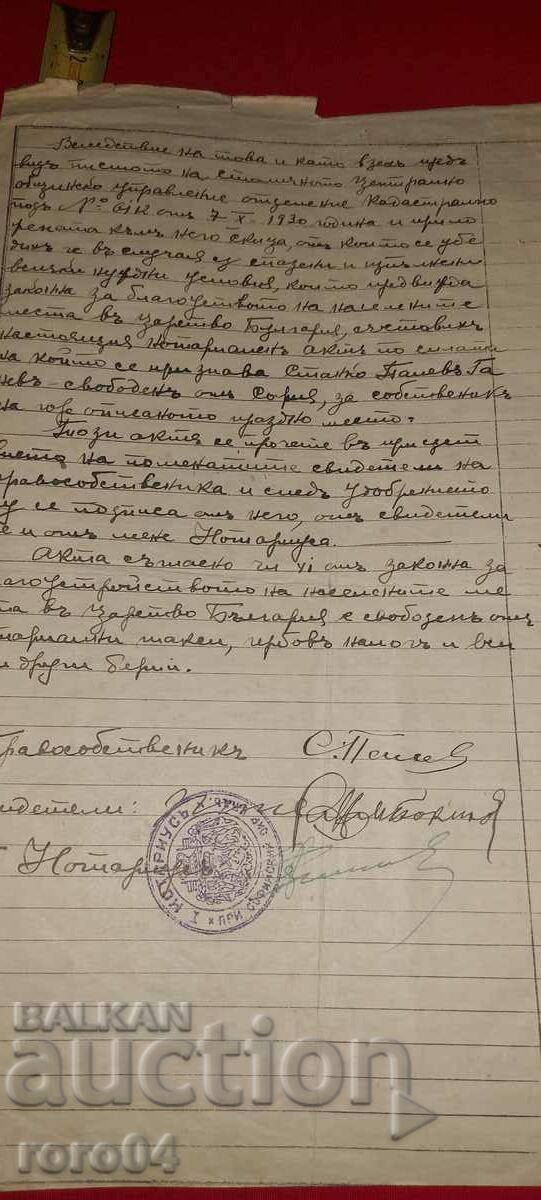 Вследствие на това и като взехъ предъ
видъ писмото на Столичното Централно
общинско управление отделение Кадастрално
подъ № 6112 отъ 7 X 1930 година и прило
жената къмъ него скица, отъ които се убе
дихъ че въ случая са спазени и изпълнени
всички нуждни условия, които предвижда
закона за благоуството на населените
места въ царство България, съставихъ
настоящия нотариаленъ актъ по силата
на който се признава Станко Пеневъ Га
невъ - свободенъ отъ София, за собственикъ
на горе описаното праздно место.
Този актъ се прочете въ присѫт
вието на поменатите свидетели на
правособственика и следъ удобрението
му се подписа отъ него, отъ свидетели
те и отъ мене Нотариуса.
Акта съгласно чл VI отъ закона за
благоустройството на населените ме
ста въ царство България е свободенъ отъ
нотариални такси, гербовъ налогъ и вси
и други берии.
Правособственикъ С. Пенев
Свидетели:
Нотариусъ
I НОТАРИУСЪ ПРИ СОФИЙСКИ ОКР. СѪДЪ
BALKAN
auction
roro04